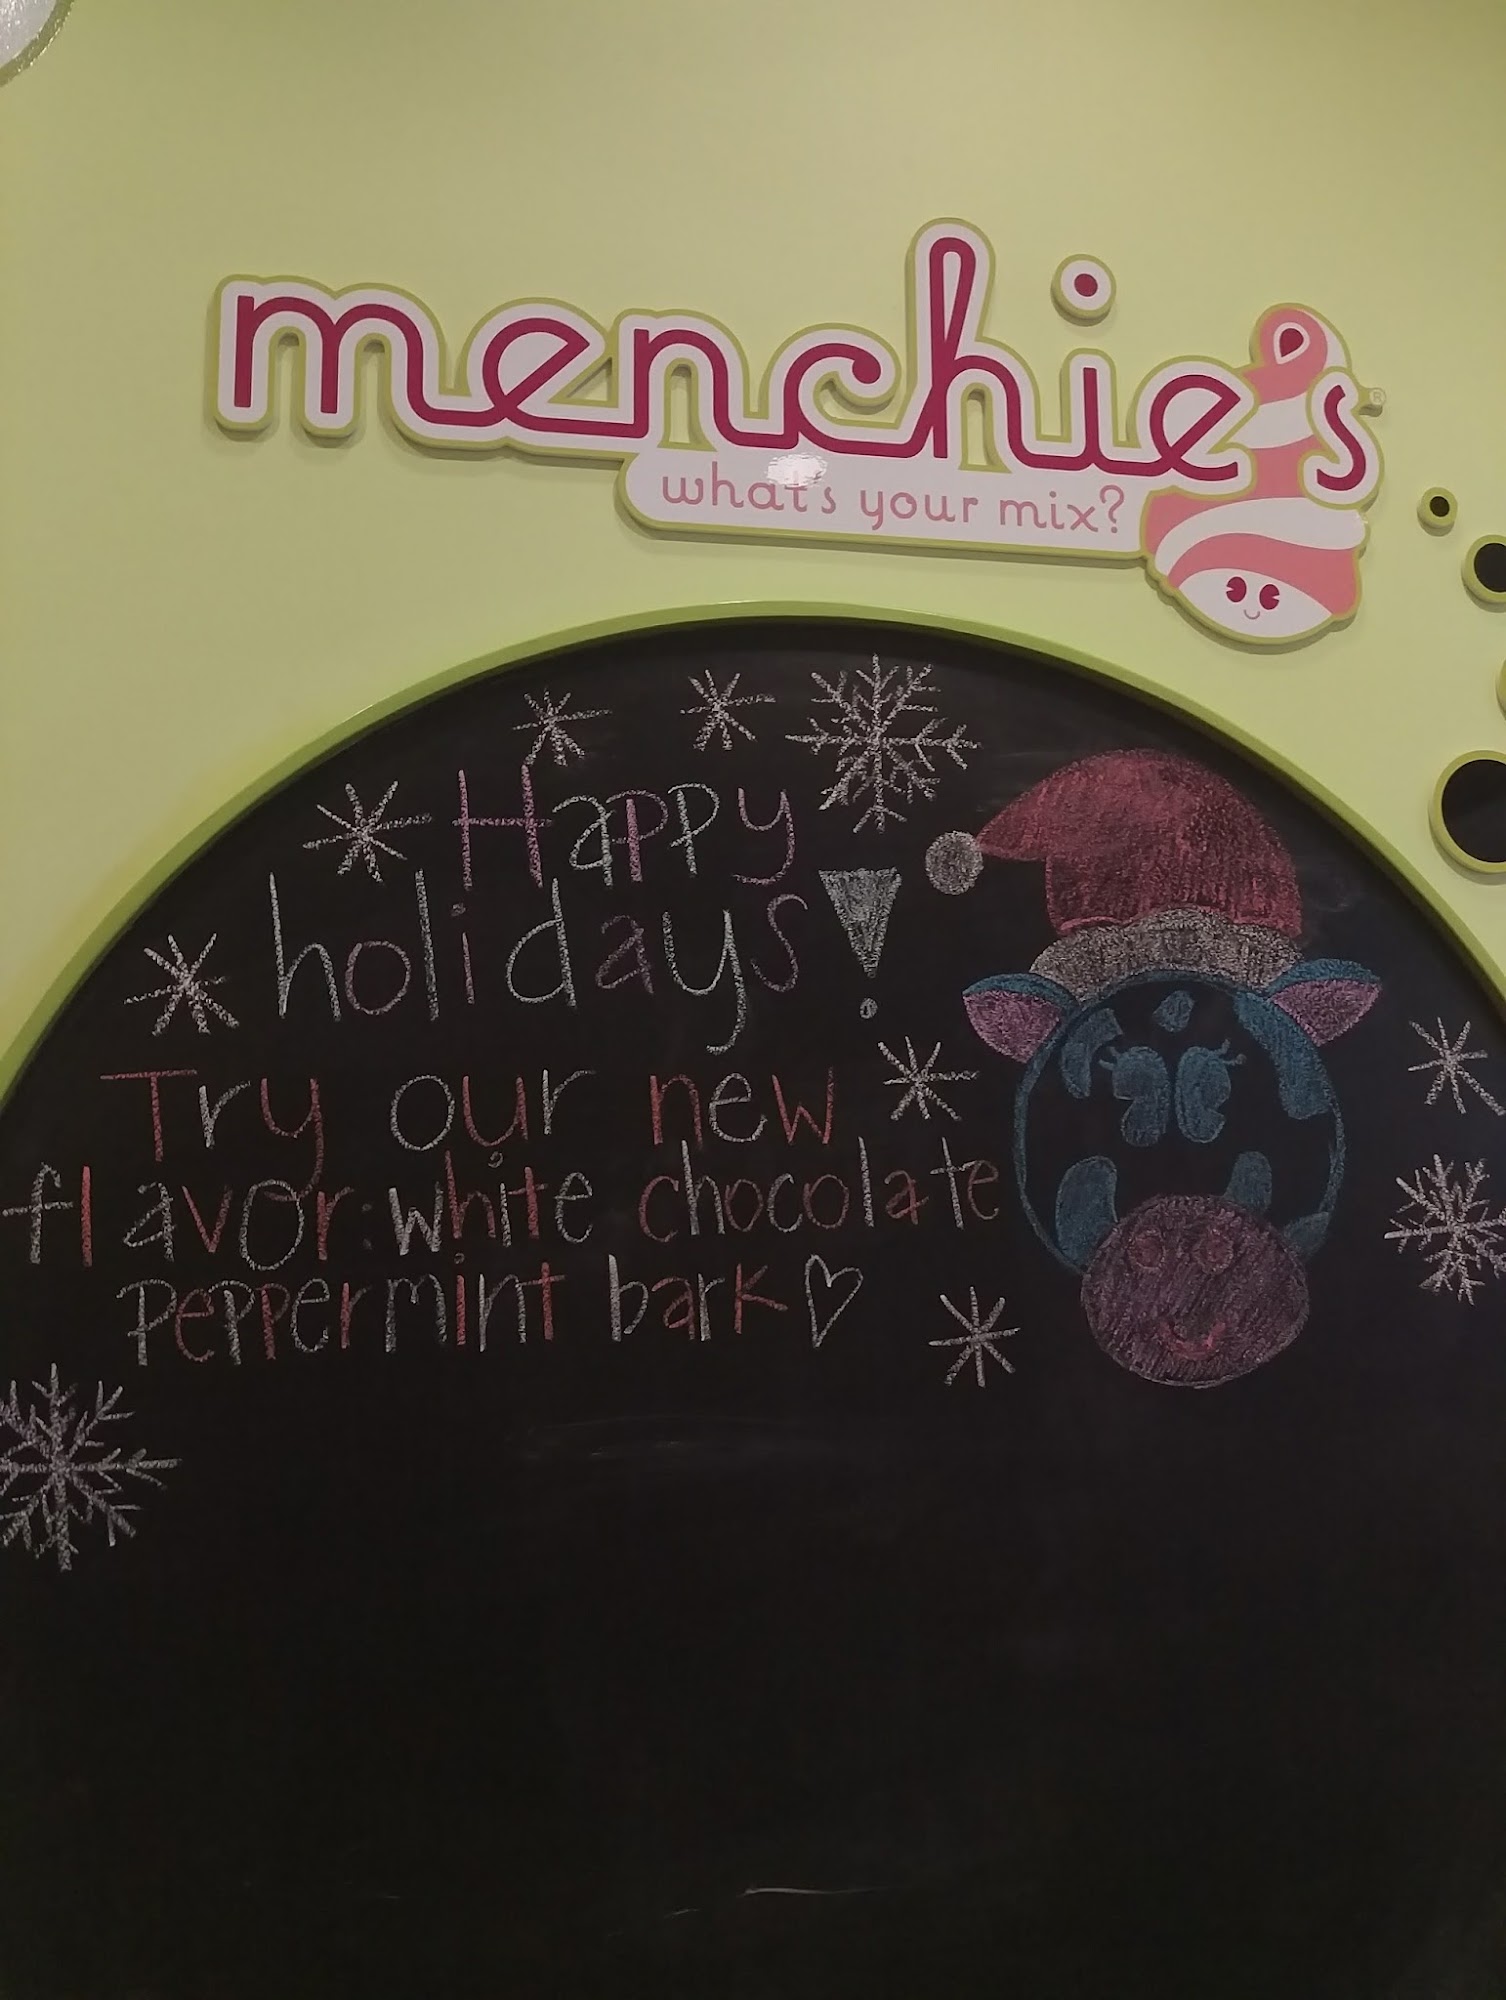 menchie's®
what's your mix?
Happy
holidays!
Try our new
flavor: white chocolate
peppermint bark